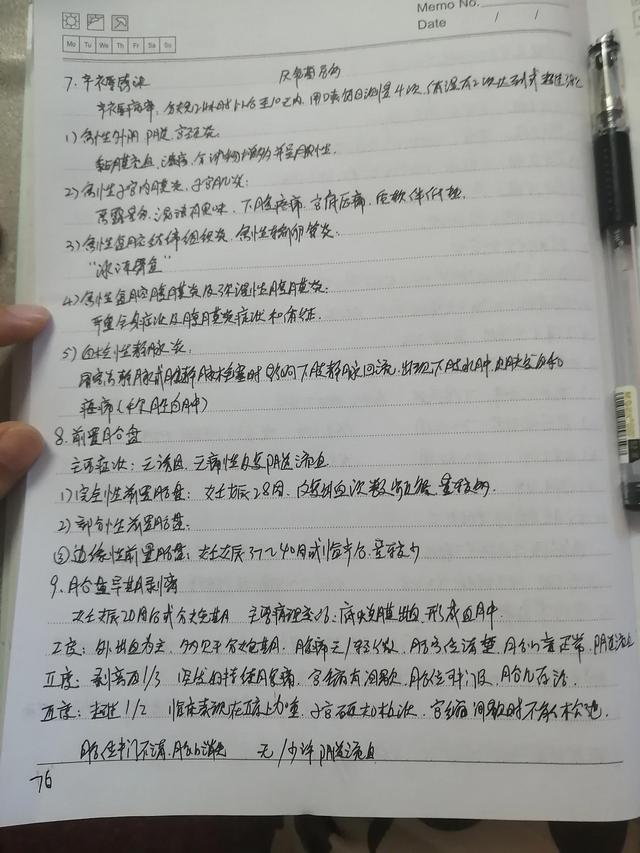 Memo No.
Date / /
Mo Tu We Th Fr Sa Su
7. 产褥感染
产褥病率：分娩24h以后至10日内，用口表每日测量4次，体温有2次达到或超过38℃
1) 急性外阴、阴道、宫颈炎
黏膜充血、溃疡、分泌物增多并呈脓性。
2) 急性子宫内膜炎、子宫肌炎：
恶露量多、混浊有臭味，下腹疼痛，宫底压痛，质软伴低热
3) 急性盆腔结缔组织炎、急性输卵管炎：
“冰冻骨盆”
4) 急性盆腔腹膜炎及弥漫性腹膜炎：
严重全身症状及腹膜炎症状和体征.
5) 血栓性静脉炎.
静脉栓塞时 影响下肢静脉回流，出现下肢水肿，皮肤发白和
疼痛（股白肿）
8. 前置胎盘
主要症状：无诱因、无痛性反复阴道流血
1) 完全性前置胎盘：妊娠28周，内出血次数频繁，量较多.
2) 部分性前置胎盘：
③ 边缘性前置胎盘：妊娠37～40周或临产后，量较少
9. 胎盘早期剥离
妊娠20周后或分娩期 主要病理变化：底蜕膜出血，形成血肿.
I度：外出血为主，多见于分娩期，腹痛无/轻微，胎位清楚，胎心率正常，阴道流血
II度：剥离面1/3 突发的持续腹痛，宫缩有间歇，胎位可扪及，胎儿存活.
III度：超过1/2 临床表现在II度上加重，子宫硬如板状，宫缩间歇时不能松弛.
胎位扪不清，胎心消失 无/少许阴道流血
76